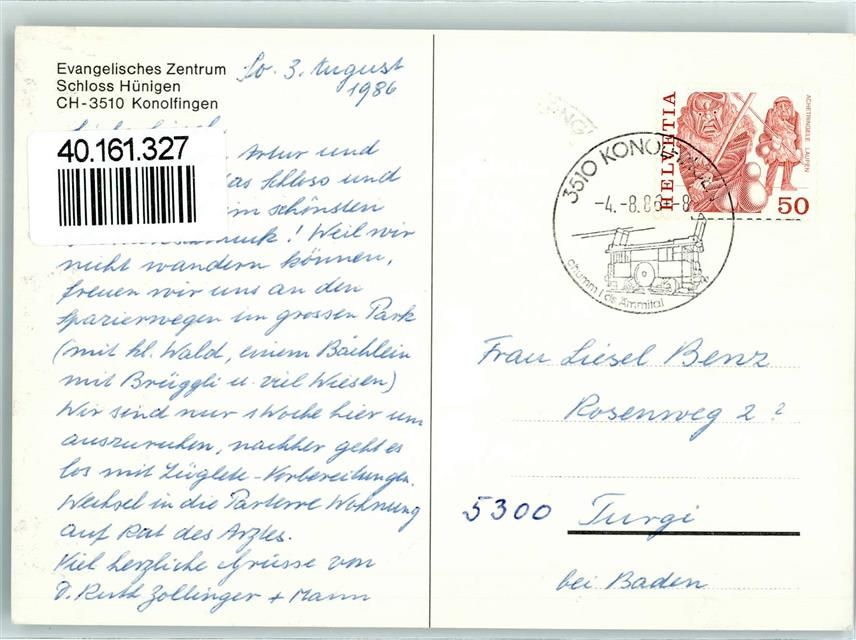 Evangelisches Zentrum
Schloss Hünigen
CH-3510 Konolfingen
So. 3. August
1986
40.161.327
Artur und
das Schloss und
im schönsten
! Weil wir
nicht wandern können,
freuen wir uns an den
Spazierwegen im grossen Park
(mit kl. Wald, einem Bächlein
mit Brüggli u. viel Wiesen)
Wir sind nur 1 Woche hier um
auszuruhen, nachher geht es
los mit Züglete-Vorbereitungen.
Wechsel in die Parterre Wohnung
auf Rat des Arztes.
Viel herzliche Grüsse von
D. Ruth Zollinger + Mann
3510 KONOLFINGEN
-4.-8.86-8
chumm i ds Ämmital
HELVETIA
ACHETRINGELE LAUPEN
50
Frau Liesel Benz
Rosenweg 2?
5300 Turgi
bei Baden